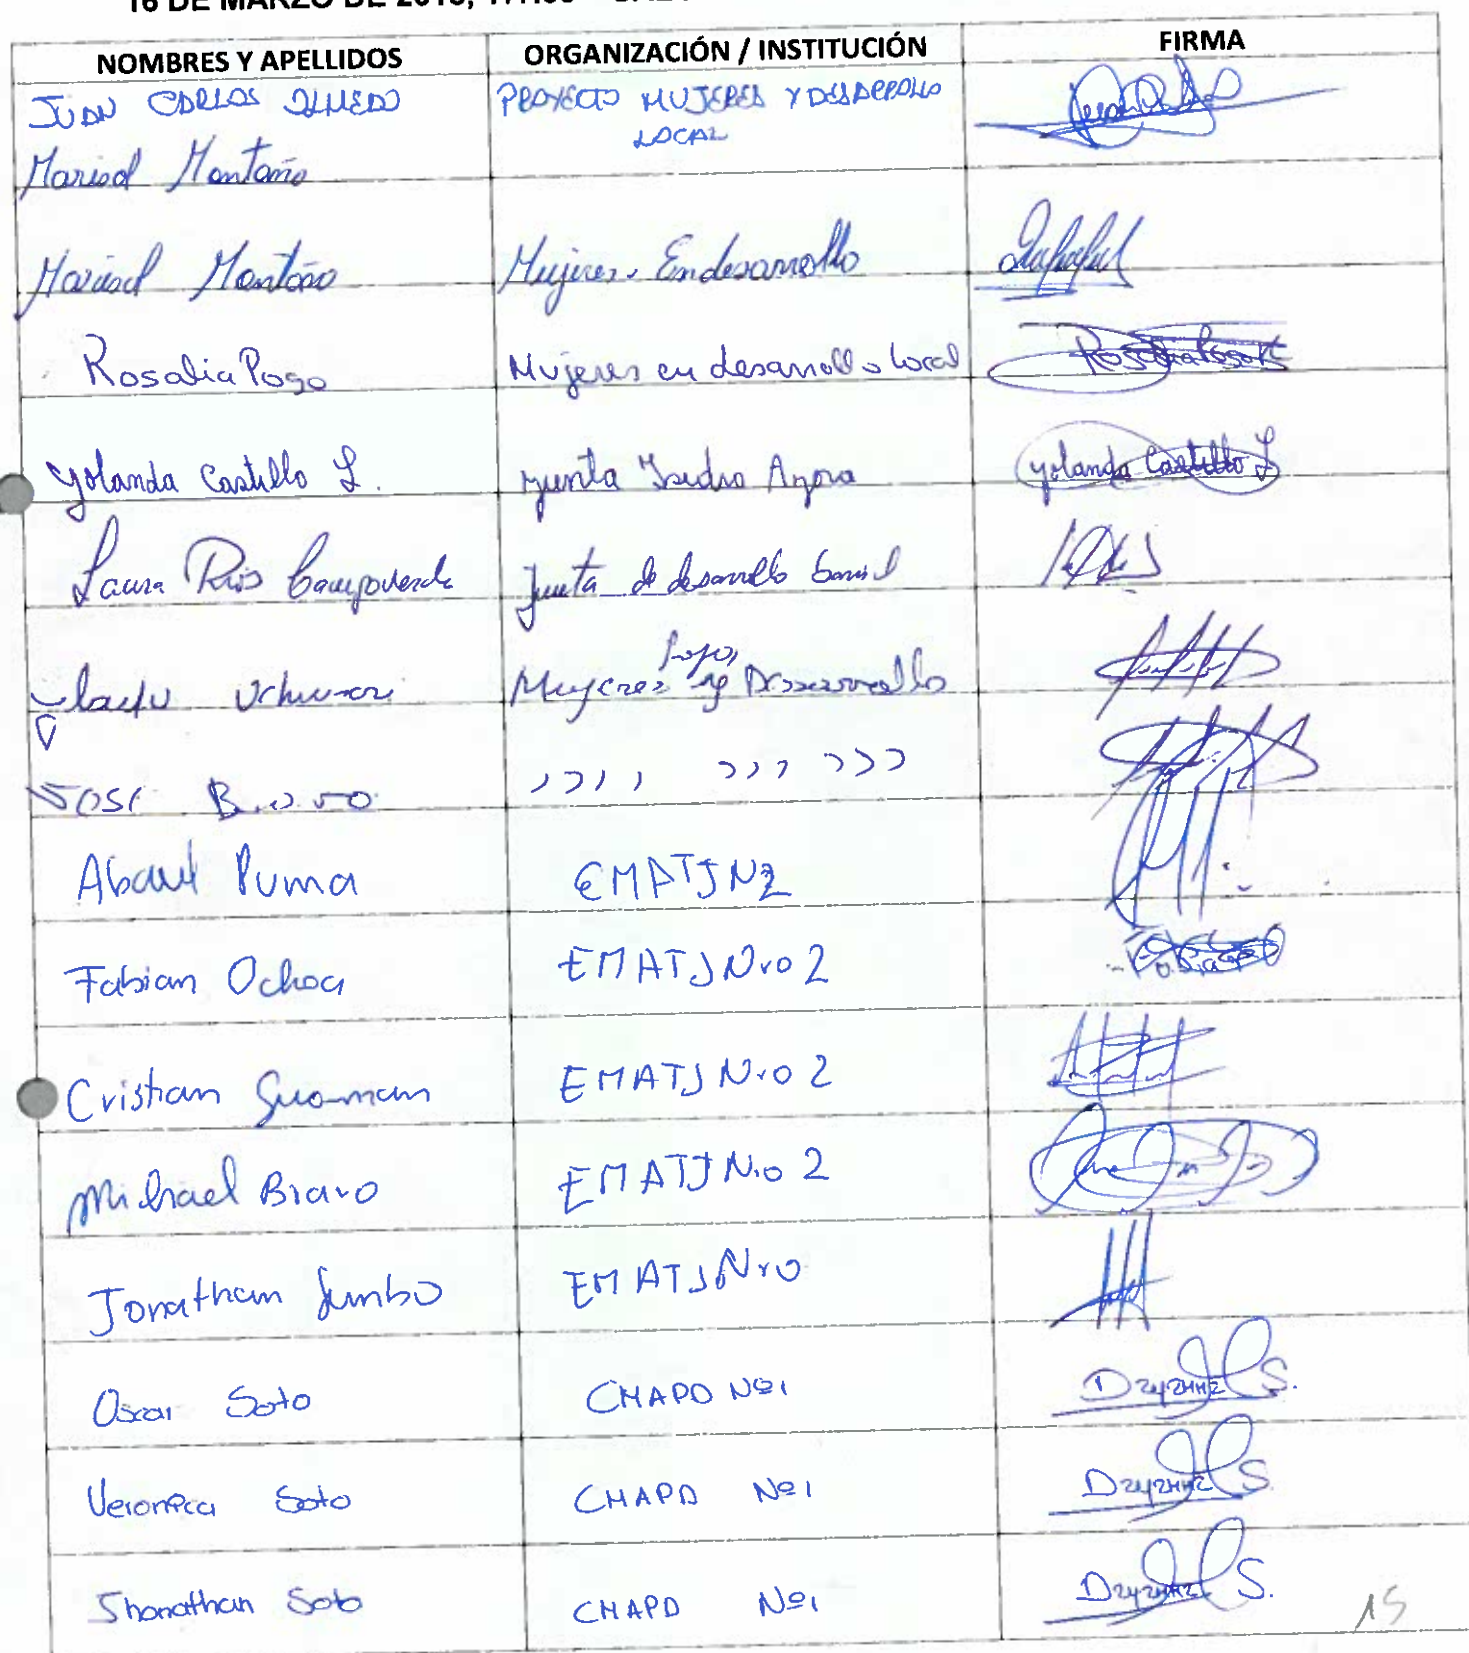 16 DE MARZO DE 2013, 17H00
NOMBRES Y APELLIDOS ORGANIZACIÓN / INSTITUCIÓN FIRMA
JUAN CARLOS OLMEDO PROYECTO MUJERES Y DESARROLLO
LOCAL
Marisol Montaño
Marisol Montaño Mujeres. Endesarrollo
Rosalia Pogo Mujeres en desarrollo local
Yolanda Castillo L. Junta Isidro Ayora Yolanda Castillo L
Laura Rios Campoverde Junta de desarrollo
Mujeres y Dessarrollo
Jose Bravo ,,,, ,,, ,,,
Puma EMATJN2
Fabian Ochoa EMATJ Nro 2
Cristian Guaman EMATJ Nro 2
Michael Bravo EMATJ Nro 2
Jonathan Jumbo EMATJ Nro
Oscar Soto CMAPD Nº1
Veronica Soto CMAPD Nº1
Jhonathan Soto CMAPD Nº1
15